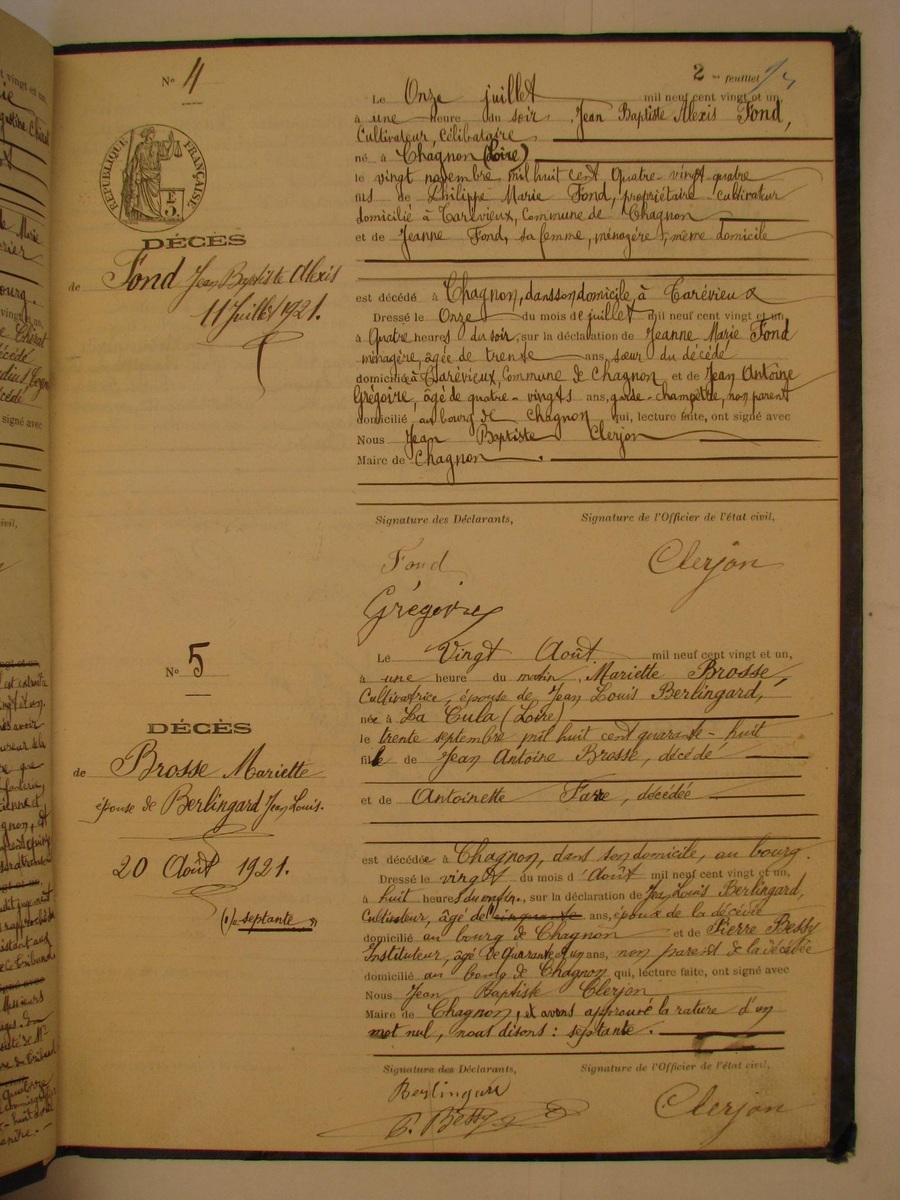 2 me feuillet
N° 4
RÉPUBLIQUE FRANÇAISE
DÉCÈS
de Fond Jean Baptiste Alexis
11 Juillet 1921.
Le Onze juillet mil neuf cent vingt et un,
à une heure du soir, Jean Baptiste Alexis Fond,
Cultivateur, Célibataire
né à Chagnon (Loire)
le vingt novembre mil huit cent Quatre-vingt quatre
fils de Philippe Marie Fond, propriétaire cultivateur
domicilié à Carévieux, Commune de Chagnon
et de Jeanne Fond, sa femme, ménagère, même domicile
est décédé à Chagnon, dans son domicile, à Carévieux
Dressé le Onze du mois de juillet mil neuf cent vingt et un
à Quatre heures du soir, sur la déclaration de Jeanne Marie Fond
ménagère, âgée de trente ans, sœur du décédé
domiciliée à Carévieux, Commune de Chagnon et de Jean Antoine
Grégoire, âgé de quatre-vingts ans, garde-champêtre, non parent
domicilié au bourg de Chagnon qui, lecture faite, ont signé avec
Nous Jean Baptiste Clerjon
Maire de Chagnon.
Signature des Déclarants, Signature de l'Officier de l'état civil,
Fond Clerjon
Grégoire
N° 5
DÉCÈS
de Brosse Mariette
épouse de Berlingard Jean Louis.
20 Août 1921.
(1) « septante »
Le Vingt Août mil neuf cent vingt et un,
à une heure du matin, Mariette Brosse,
Cultivatrice, épouse de Jean Louis Berlingard,
née à La Cula (Loire)
le trente septembre mil huit cent quarante-huit
fille de Jean Antoine Brosse, décédé
et de Antoinette Farre, décédée
est décédée à Chagnon, dans son domicile, au bourg.
Dressé le vingt du mois d'Août mil neuf cent vingt et un,
à huit heures du matin, sur la déclaration de Jean Louis Berlingard,
Cultivateur, âgé de (1) cinquante ans, époux de la décédée
domicilié au bourg de Chagnon et de Pierre Bessy
Instituteur, âgé de Quarante et un ans, non parent de la décédée
domicilié au bourg de Chagnon qui, lecture faite, ont signé avec
Nous Jean Baptiste Clerjon
Maire de Chagnon, et avons approuvé la rature d'un
mot nul, nous disons : septante.
Signature des Déclarants, Signature de l'Officier de l'état civil,
Berlingard
P. Bessy Clerjon